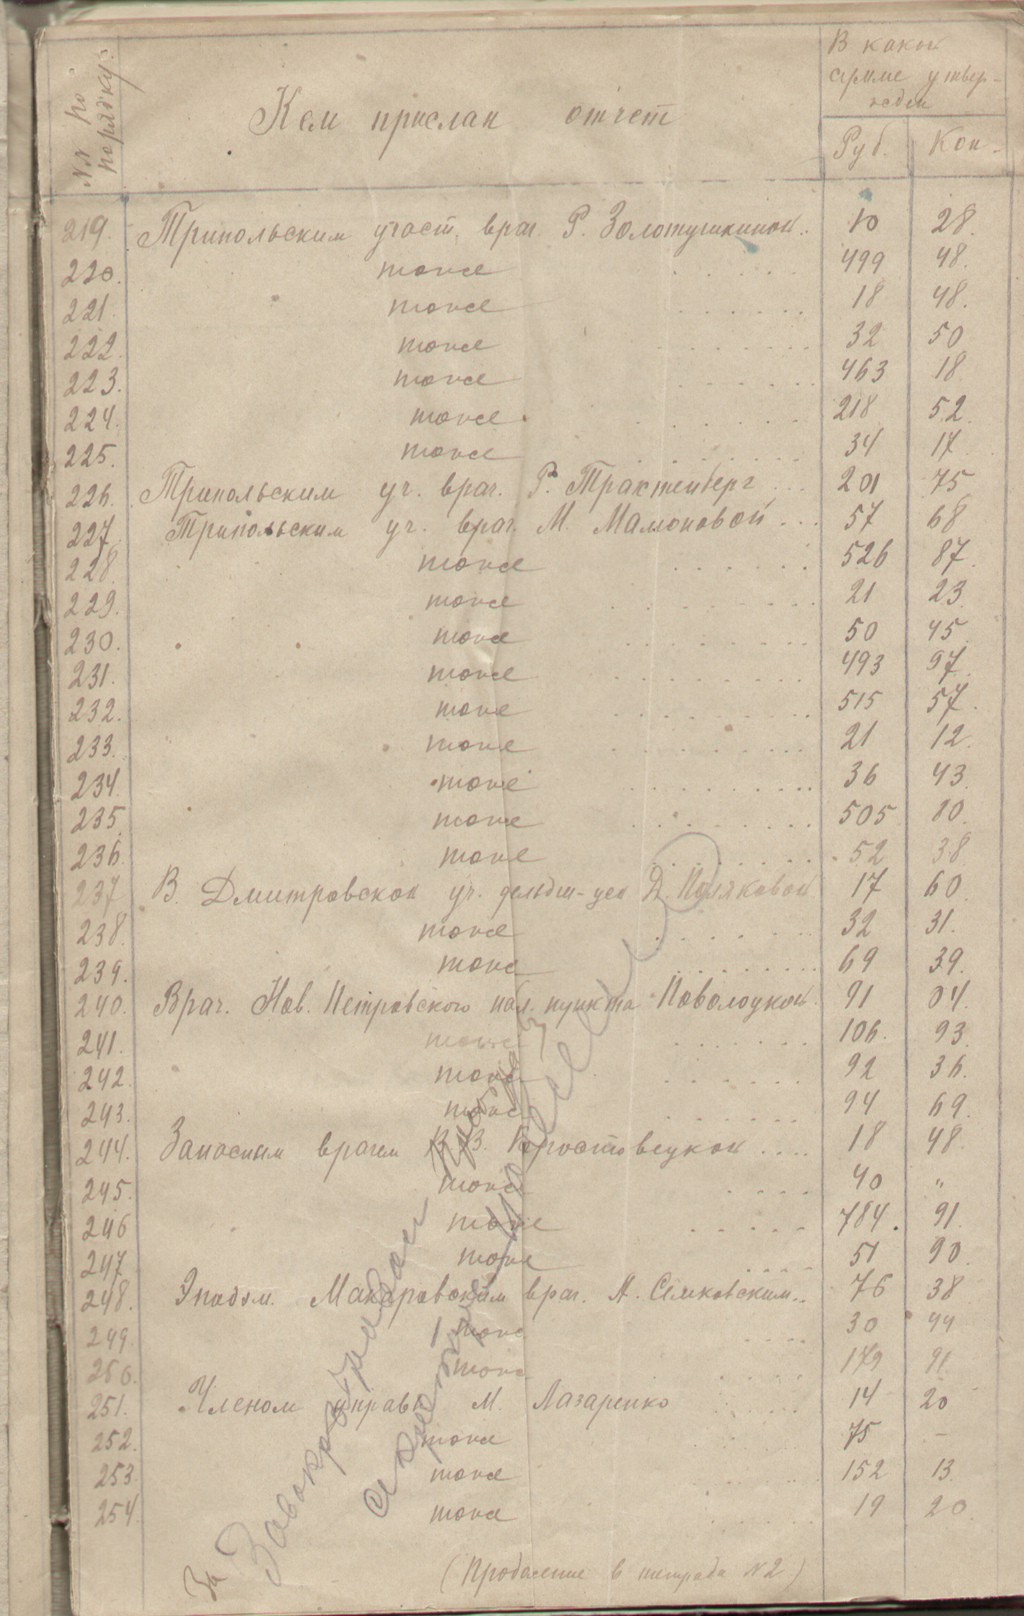 №№ по порядку.
Кем прислан отчет
В какой сумме утвержден
Руб. Коп.
219. Трипольским участ. врач. Р. Золотушкиной.. 10 28.
220. тоже ..... 499 48.
221. тоже ..... 18 48.
222. тоже ..... 32 50
223. тоже ..... 463 18
224. тоже ..... 218 52.
225. тоже ..... 34 17
226. Трипольским уч. врач. Р. Трактенберг ... 201 75
227. Трипольским уч. врач. М. Мамоновой ... 57 68
228. тоже ..... 526 87.
229. тоже ..... 21 23
230. тоже ..... 50 45
231. тоже ..... 493 97.
232. тоже ..... 515 57.
233. тоже ..... 21 12.
234. тоже ..... 36 43.
235. тоже ..... 505 80.
236. тоже ..... 52 38
237 В. Дмитровской уч. фельдш-цей Д. Поляковой 17 60
238. тоже ..... 32 31.
239. тоже ..... 69 39.
240. Врач. Нов. Петровского пункта Поволоцкой. 91 04.
241. тоже ..... 106. 93.
242. тоже ..... 92 36.
243. тоже ..... 94 69.
244. Запасным врачем Коростовецкой .... 18 48.
245. тоже .... 40 "
246 тоже ..... 784. 91.
247. тоже .... 51 90.
248. Эпидем. Макаровским врач. А. Семковским.. 76 38
249. тоже .... 30 44
250. тоже .... 179 91
251. Членом управы М. Лазаренко ..... 14 20
252. тоже 75 -
253 тоже 152 13.
254. тоже 19 20
За Завокрздравом
секретарь
(Продолжение в тетради №2)